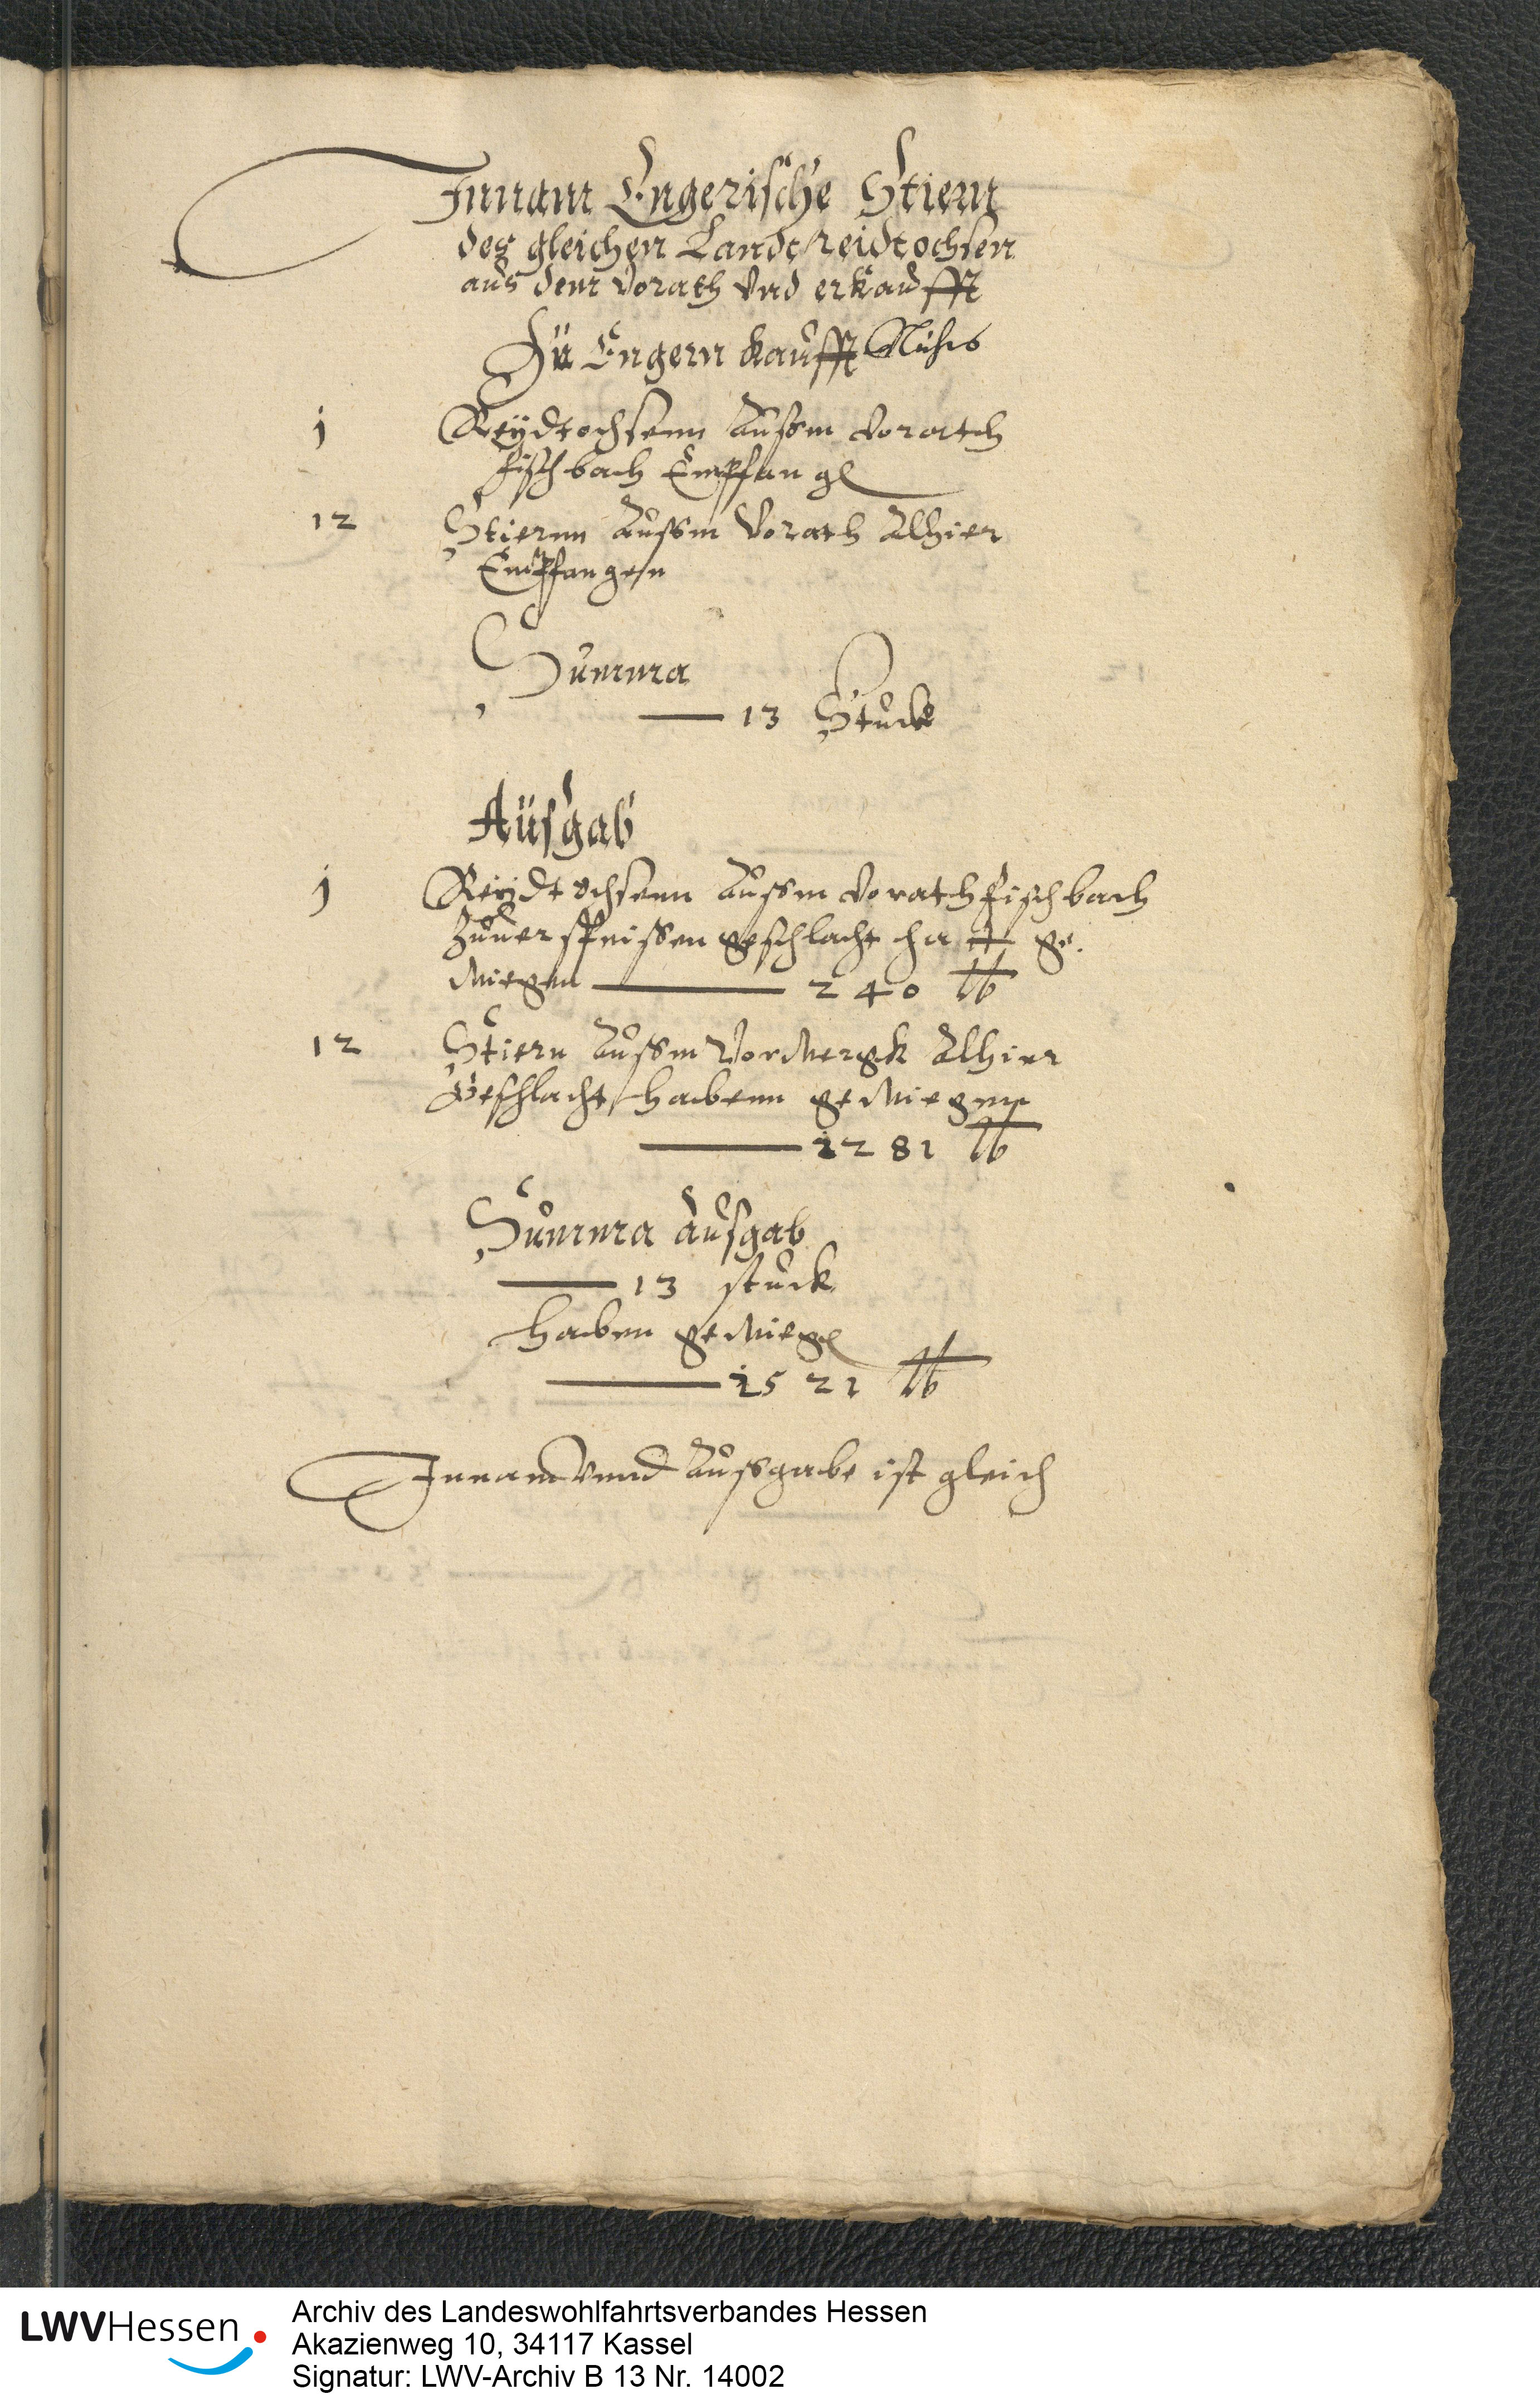 Innam Engerische Stiern
des gleichen Landt reidtochsen
aus dem Vorath Vnd erkaufft
Zu Engern kaufft Nichts
j Reÿdtochsenn Aussm Vorath
fischbach Empfang
12 Stiernn Aussm Vorath Alhier
Empfangen
Summa
13 Stuck
Ausgab
j Reÿdtochsenn Aussm Vorath fischbach
Zuuerspeissen geschlacht hatt ge.
wiegen 240 lb
12 Stiern Aussm Vorwergk Alhier
Geschlacht habenn gewiegen
1281 lb
Summa Ausgab
13 stuck
Haben gewieg
1521 lb
Innam vnnd Aussgabe ist gleich
LWVHessen
Archiv des Landeswohlfahrtsverbandes Hessen
Akazienweg 10, 34117 Kassel
Signatur: LWV-Archiv B 13 Nr. 14002